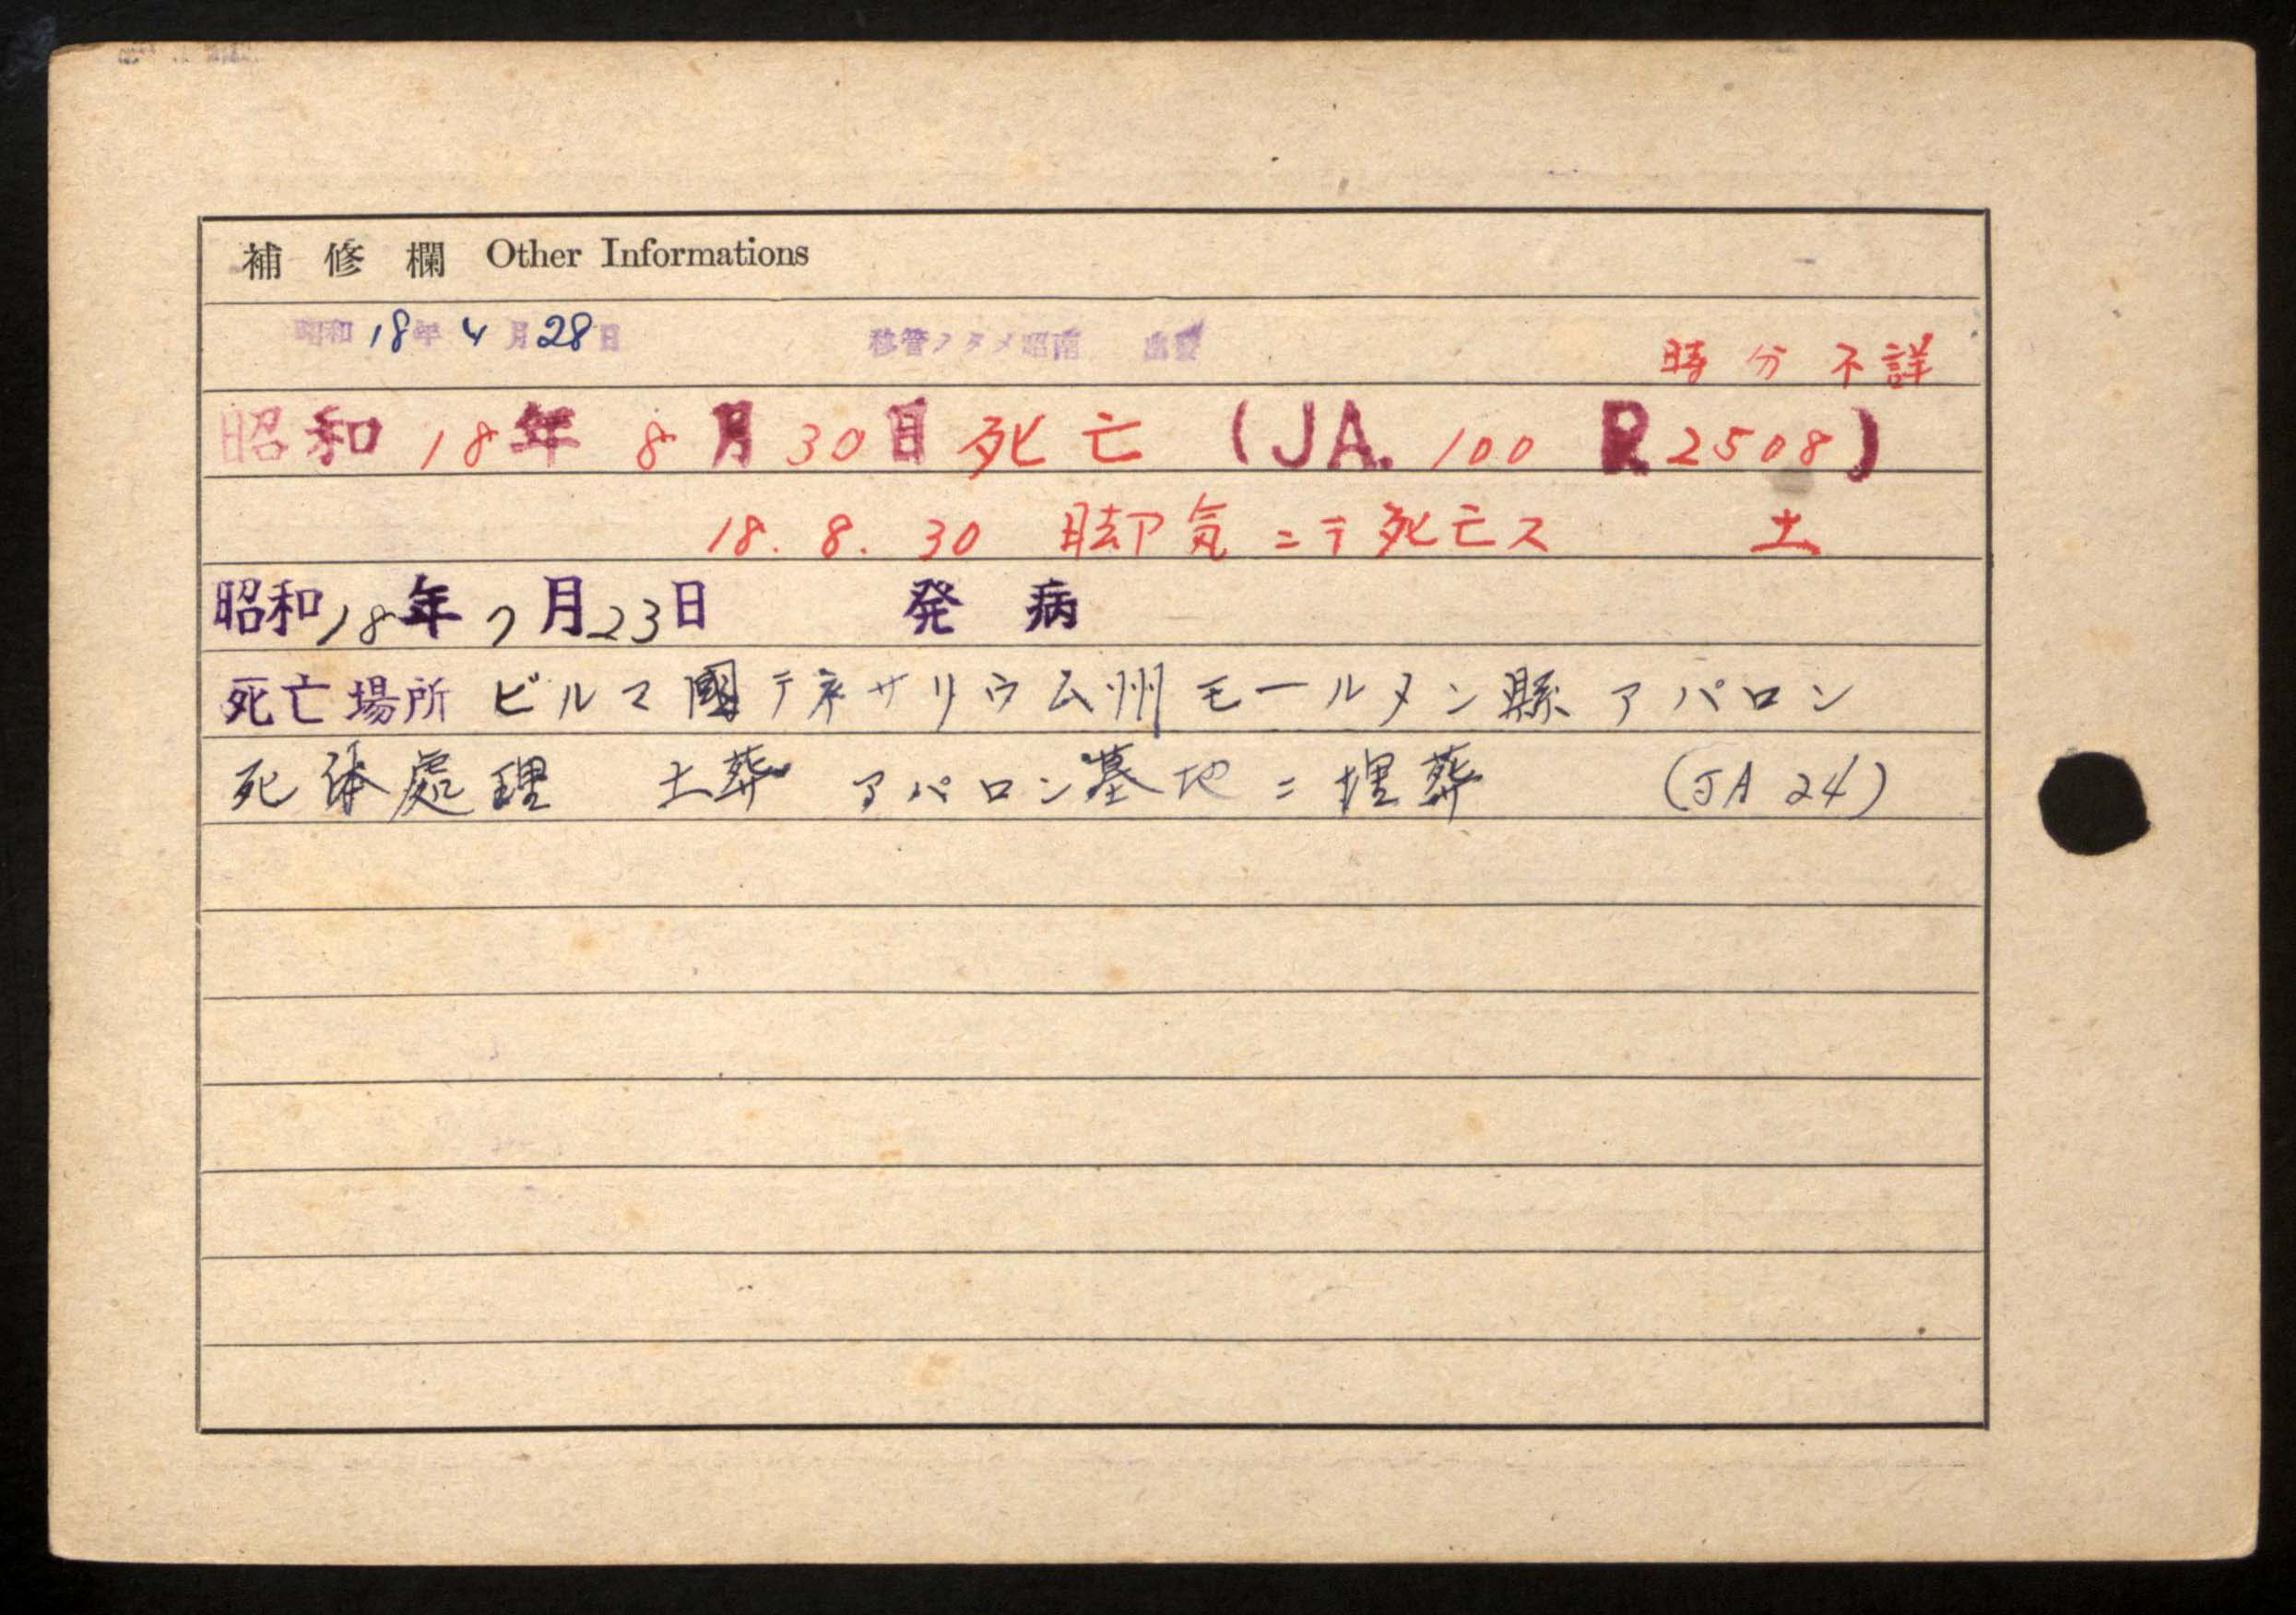 補修欄 Other Informations
昭和18年4月28日 移管ノタメ昭南 出發
時分不詳
昭和18年8月30日死亡 (JA. 100 R2508)
18. 8. 30 脚气ニテ死亡ス 土
昭和18年7月23日 発病
死亡場所 ビルマ國テネサリウム州モールメン縣アパロン
死体處理 土葬 アパロン墓地ニ埋葬 (JA 24)